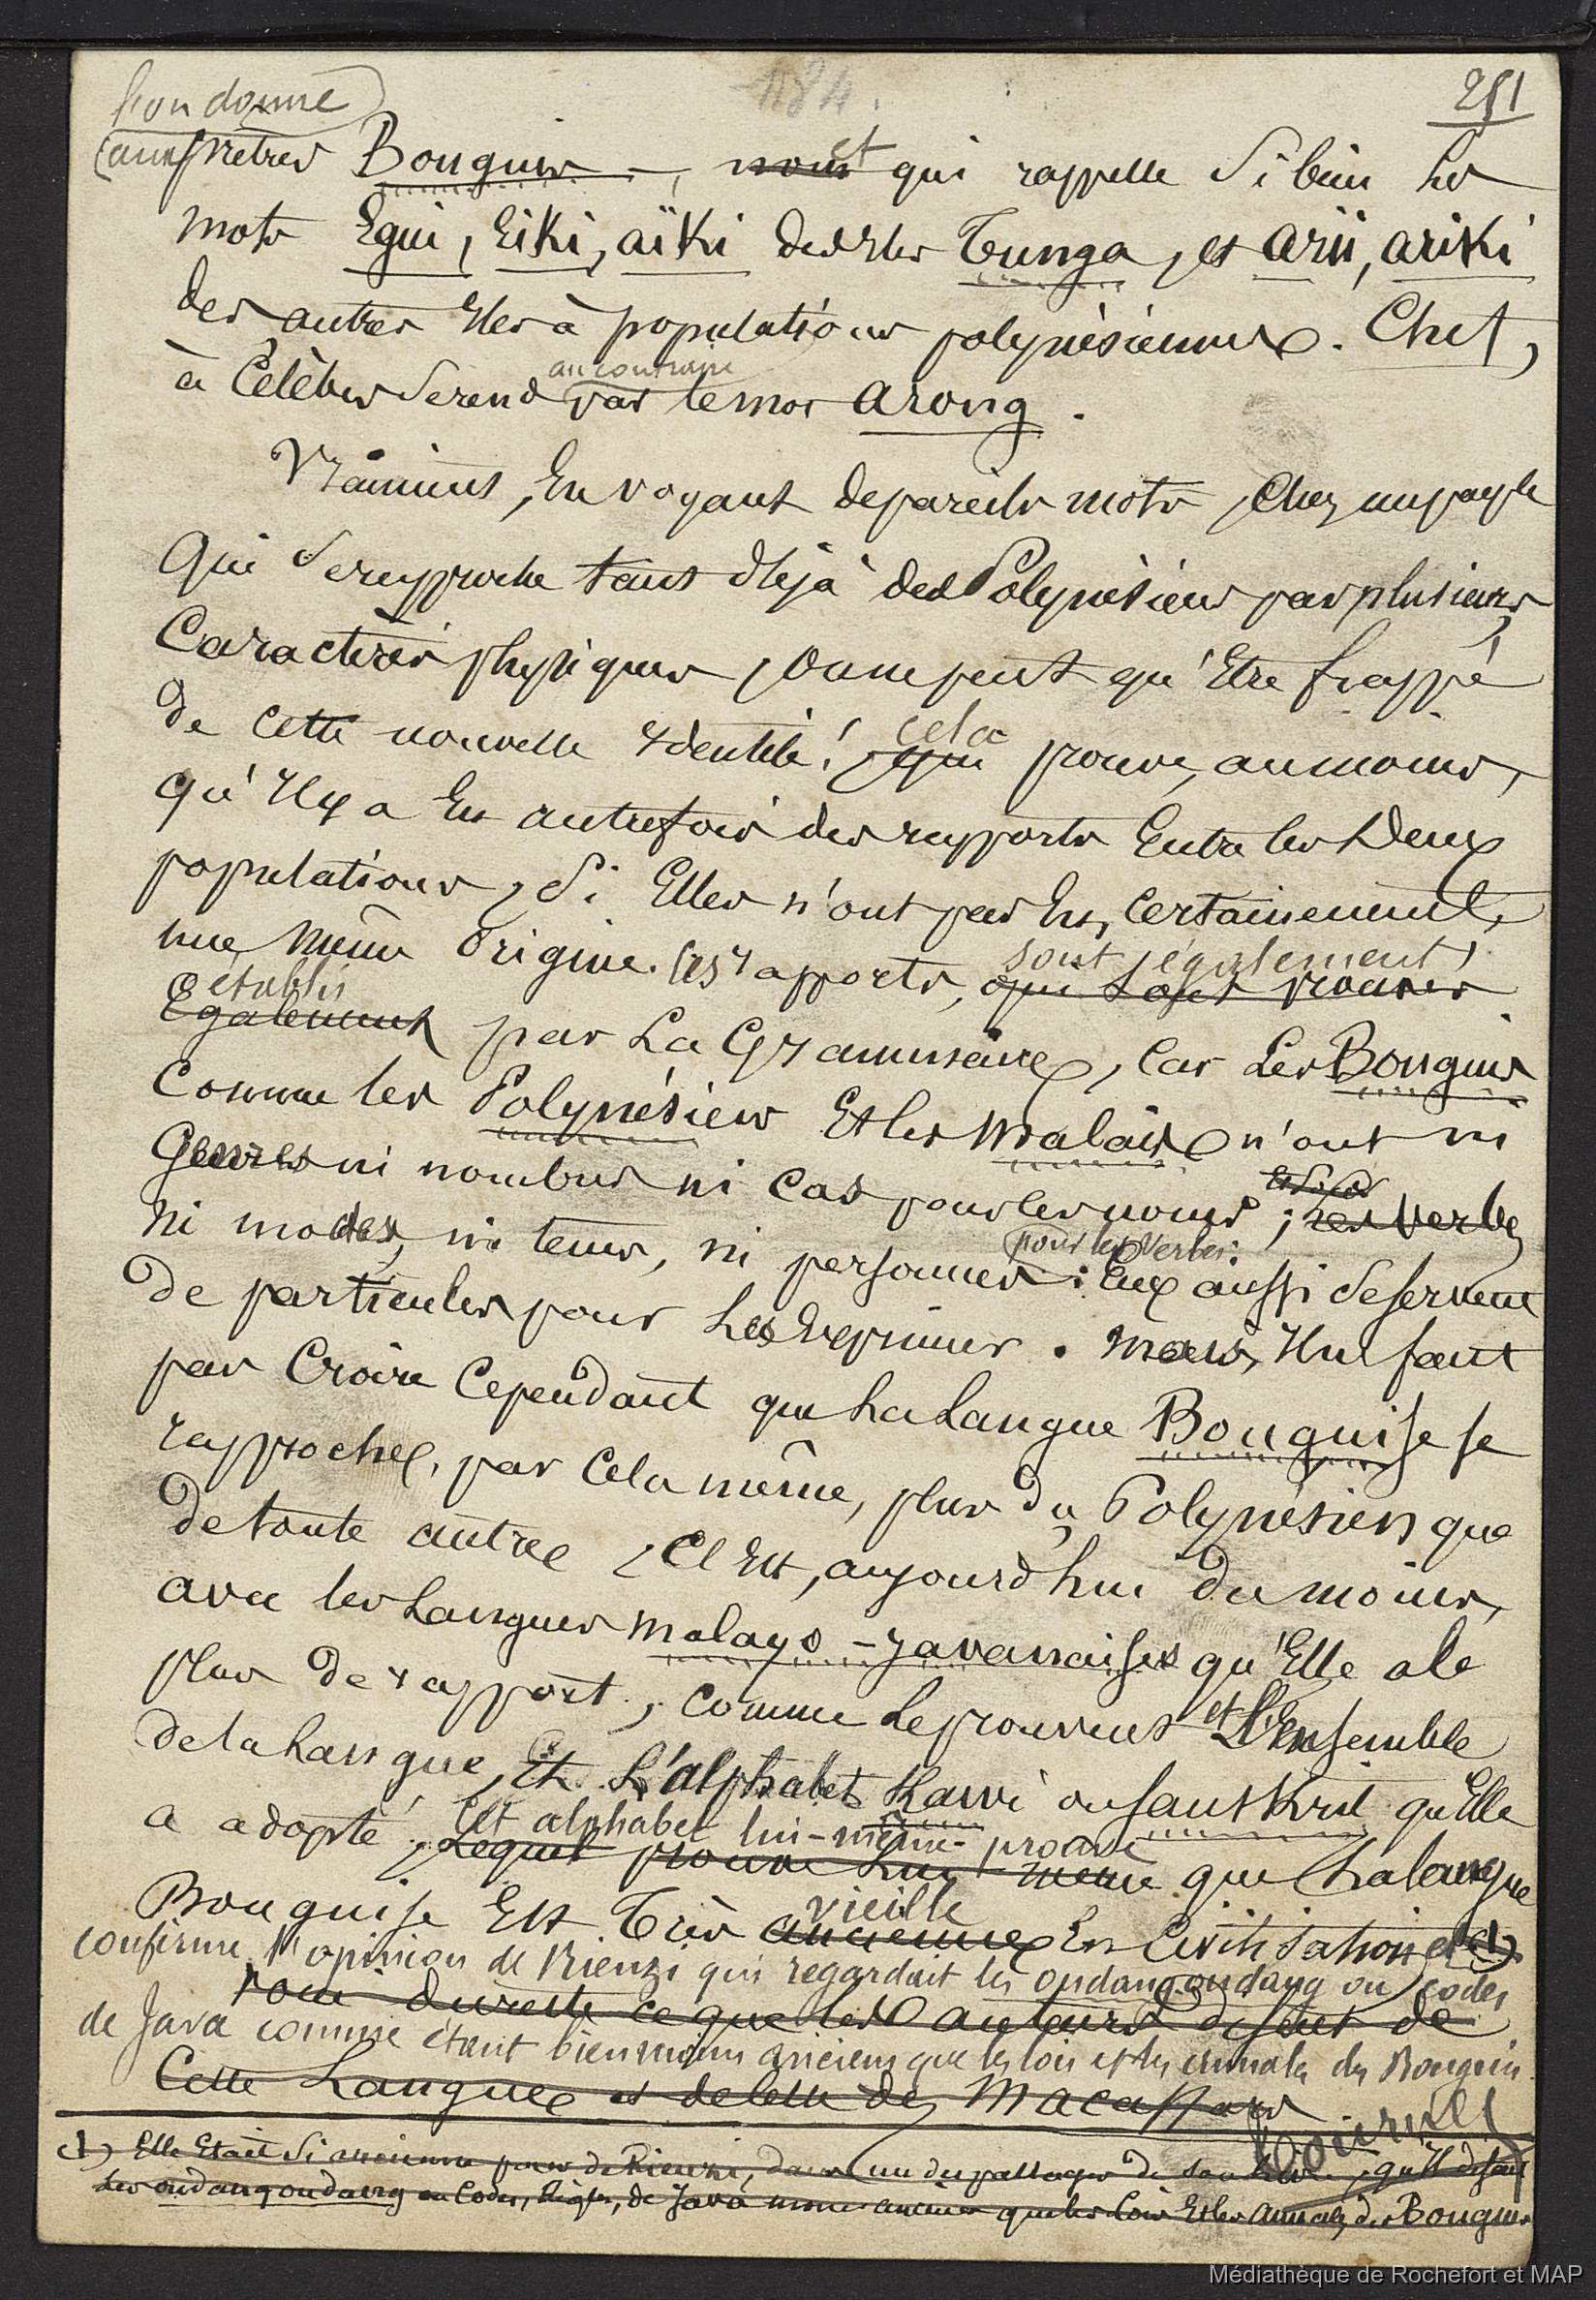 184.
251
l'on donne
aux prêtres Bouguis —, nom et qui rappelle si bien les
mots Egui, Eiki, aïki des Iles Tunga, et arii, ariki
des autres Iles à populations polynésiennes. Chef,
au contraire
à Célèbes se rend par le mot arong.
Vraiment, En voyant de pareils mots, Chez un peuple
Qui se rapproche tant déjà des Polynésiens par plusieurs
Caractères physiques, on ne peut qu'être frappé
de cette nouvelle Identité! qui cela prouve, au moins,
qu'Il y a Eu autrefois des rapports Entre les Deux
populations, si Elles n'ont pas Eu, Certainement,
une même Origine. Ces rapports, qui sont prouvés
sont également
établis
Egalement par La Grammaire, Car Les Bouguis
Comme les Polynésiens Et les Malais n'ont ni
Genres ni nombres ni Cas pour les noms; les verbes
ni modes, ni tems, ni personnes: Eux aussi se servent
pour les verbes:
de particules pour Les Exprimer. Mais, Il ne faut
pas Croire Cependant que La Langue Bouguise se
rapproche, par Cela même, plus du Polynésien que
de toute autre, C'Est, aujourd'hui du moins,
avec les Langues malayo-javanaises qu'Elle a le
plus de rapport, comme Le prouvent et L'Ensemble
de la Langue, Et L'alphabet Kawi ou sanskrit qu'Elle
a adopté. Cet alphabet lui-même prouve
Lequel prouve lui même que La langue
Bouguise Est Très ancienne vieille En Civilisation et (1)
confirme l'opinion de Rienzi qui regardait les oudang oudang ou codes
du reste ce que les auteurs disent de
de Java comme étant bien moins anciens que les lois et les annales des Bouguis.
Cette Langue et de celle des Macassars
(1) Elle Etait si ancienne pour de Rienzi, dans un des passages de son livre, qu'Il disait
les oudang oudang ou Codes, Liges, de Java moins anciens que les Lois Et les annales des Bouguis
Médiathèque de Rochefort et MAP